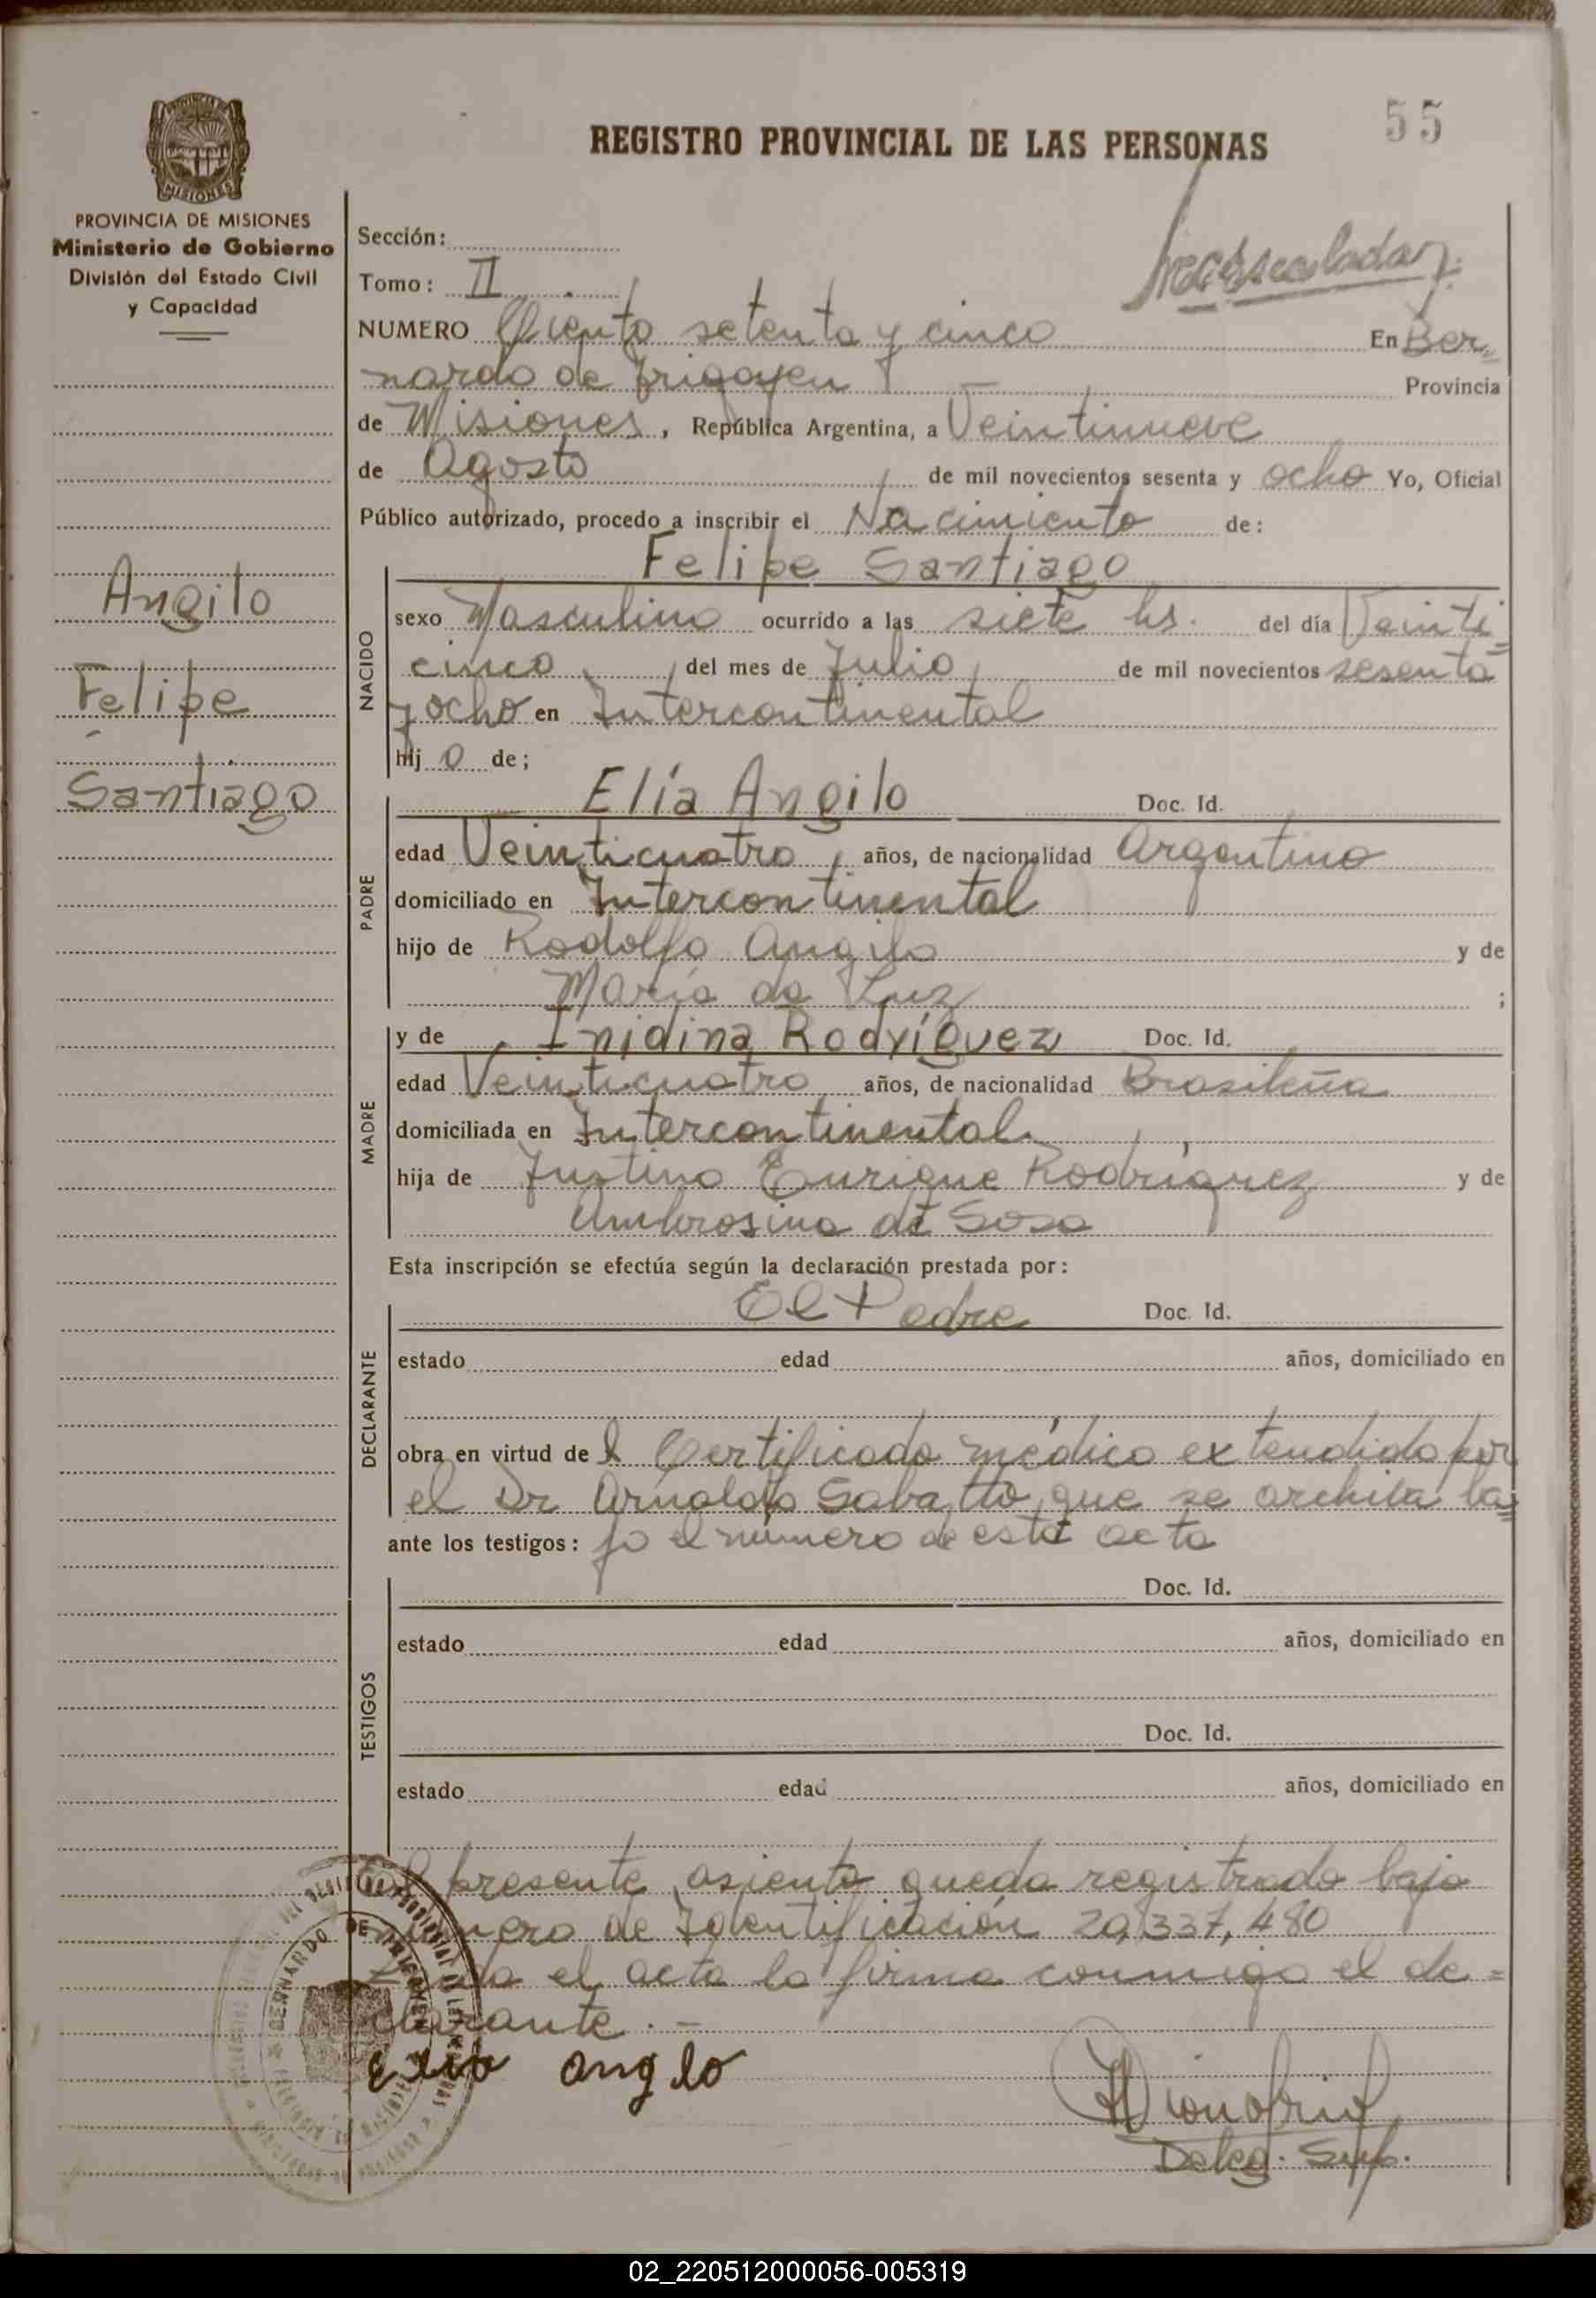 55
REGISTRO PROVINCIAL DE LAS PERSONAS
MISIONES
PROVINCIA DE MISIONES
Ministerio de Gobierno
División del Estado Civil
y Capacidad
Angilo
Felipe
Santiago
Sección:
Tomo: II
NUMERO Ciento setenta y cinco En Ber
nardo de Irigoyen Provincia
de Misiones, República Argentina, a Veintinueve
de Agosto de mil novecientos sesenta y ocho Yo, Oficial
Público autorizado, procedo a inscribir el Nacimiento de:
Felipe Santiago
NACIDO
sexo Masculino ocurrido a las siete hs. del día Veinti=
cinco del mes de Julio de mil novecientos sesenta
y ocho en Intercontinental
hij o de;
Elía Angilo Doc. Id.
PADRE
edad Veinticuatro años, de nacionalidad Argentino
domiciliado en Intercontinental
hijo de Rodolfo Angilo y de
María da Luz ;
y de Inidina Rodríguez Doc. Id.
MADRE
edad Veinticuatro años, de nacionalidad Brasileña
domiciliada en Intercontinental
hija de Justino Enrique Rodríguez y de
Ambrosina de Sosa
Esta inscripción se efectúa según la declaración prestada por:
El Padre Doc. Id.
DECLARANTE
estado edad años, domiciliado en
obra en virtud de l Certificado médico extendido por
el Dr Arnoldo Sabatto, que se archiva ba=
ante los testigos: jo el número de esta acta
Doc. Id.
TESTIGOS
estado edad años, domiciliado en
Doc. Id.
estado edad años, domiciliado en
El presente asiento queda registrado bajo
número de Identificación 20,337,480
Leída el acta la firma conmigo el de=
clarante.-
Elia anglo
Deleg. Sup.
BERNARDO DE IRIGOYEN
02_220512000056-005319